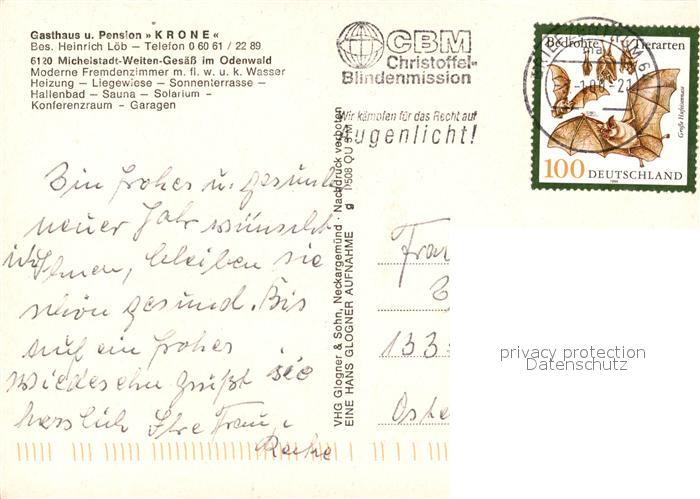 Gasthaus u. Pension »KRONE«
Bes. Heinrich Löb – Telefon 0 60 61 / 22 89
6120 Michelstadt-Weiten-Gesäß im Odenwald
Moderne Fremdenzimmer m. fl. w. u. k. Wasser
Heizung – Liegewiese – Sonnenterrasse –
Hallenbad – Sauna – Solarium –
Konferenzraum – Garagen
CBM
Christoffel-
Blindenmission
Wir kämpfen für das Recht auf
Augenlicht!
Bedrohte Tierarten
Große Hufeisennase
100 DEUTSCHLAND
VHG Glogner & Sohn, Neckargemünd · Nachdruck verboten
EINE HANS GLOGNER AUFNAHME g D508 QU SM
Ein frohes u. gesundes
neuer Jahr wünscht
Ihnen, bleiben sie
schön gesund. Bis
auf ein frohes
wiedersehn grüßt sie
herzlich Ihre Frau
Frau
133
Oste
privacy protection
Datenschutz